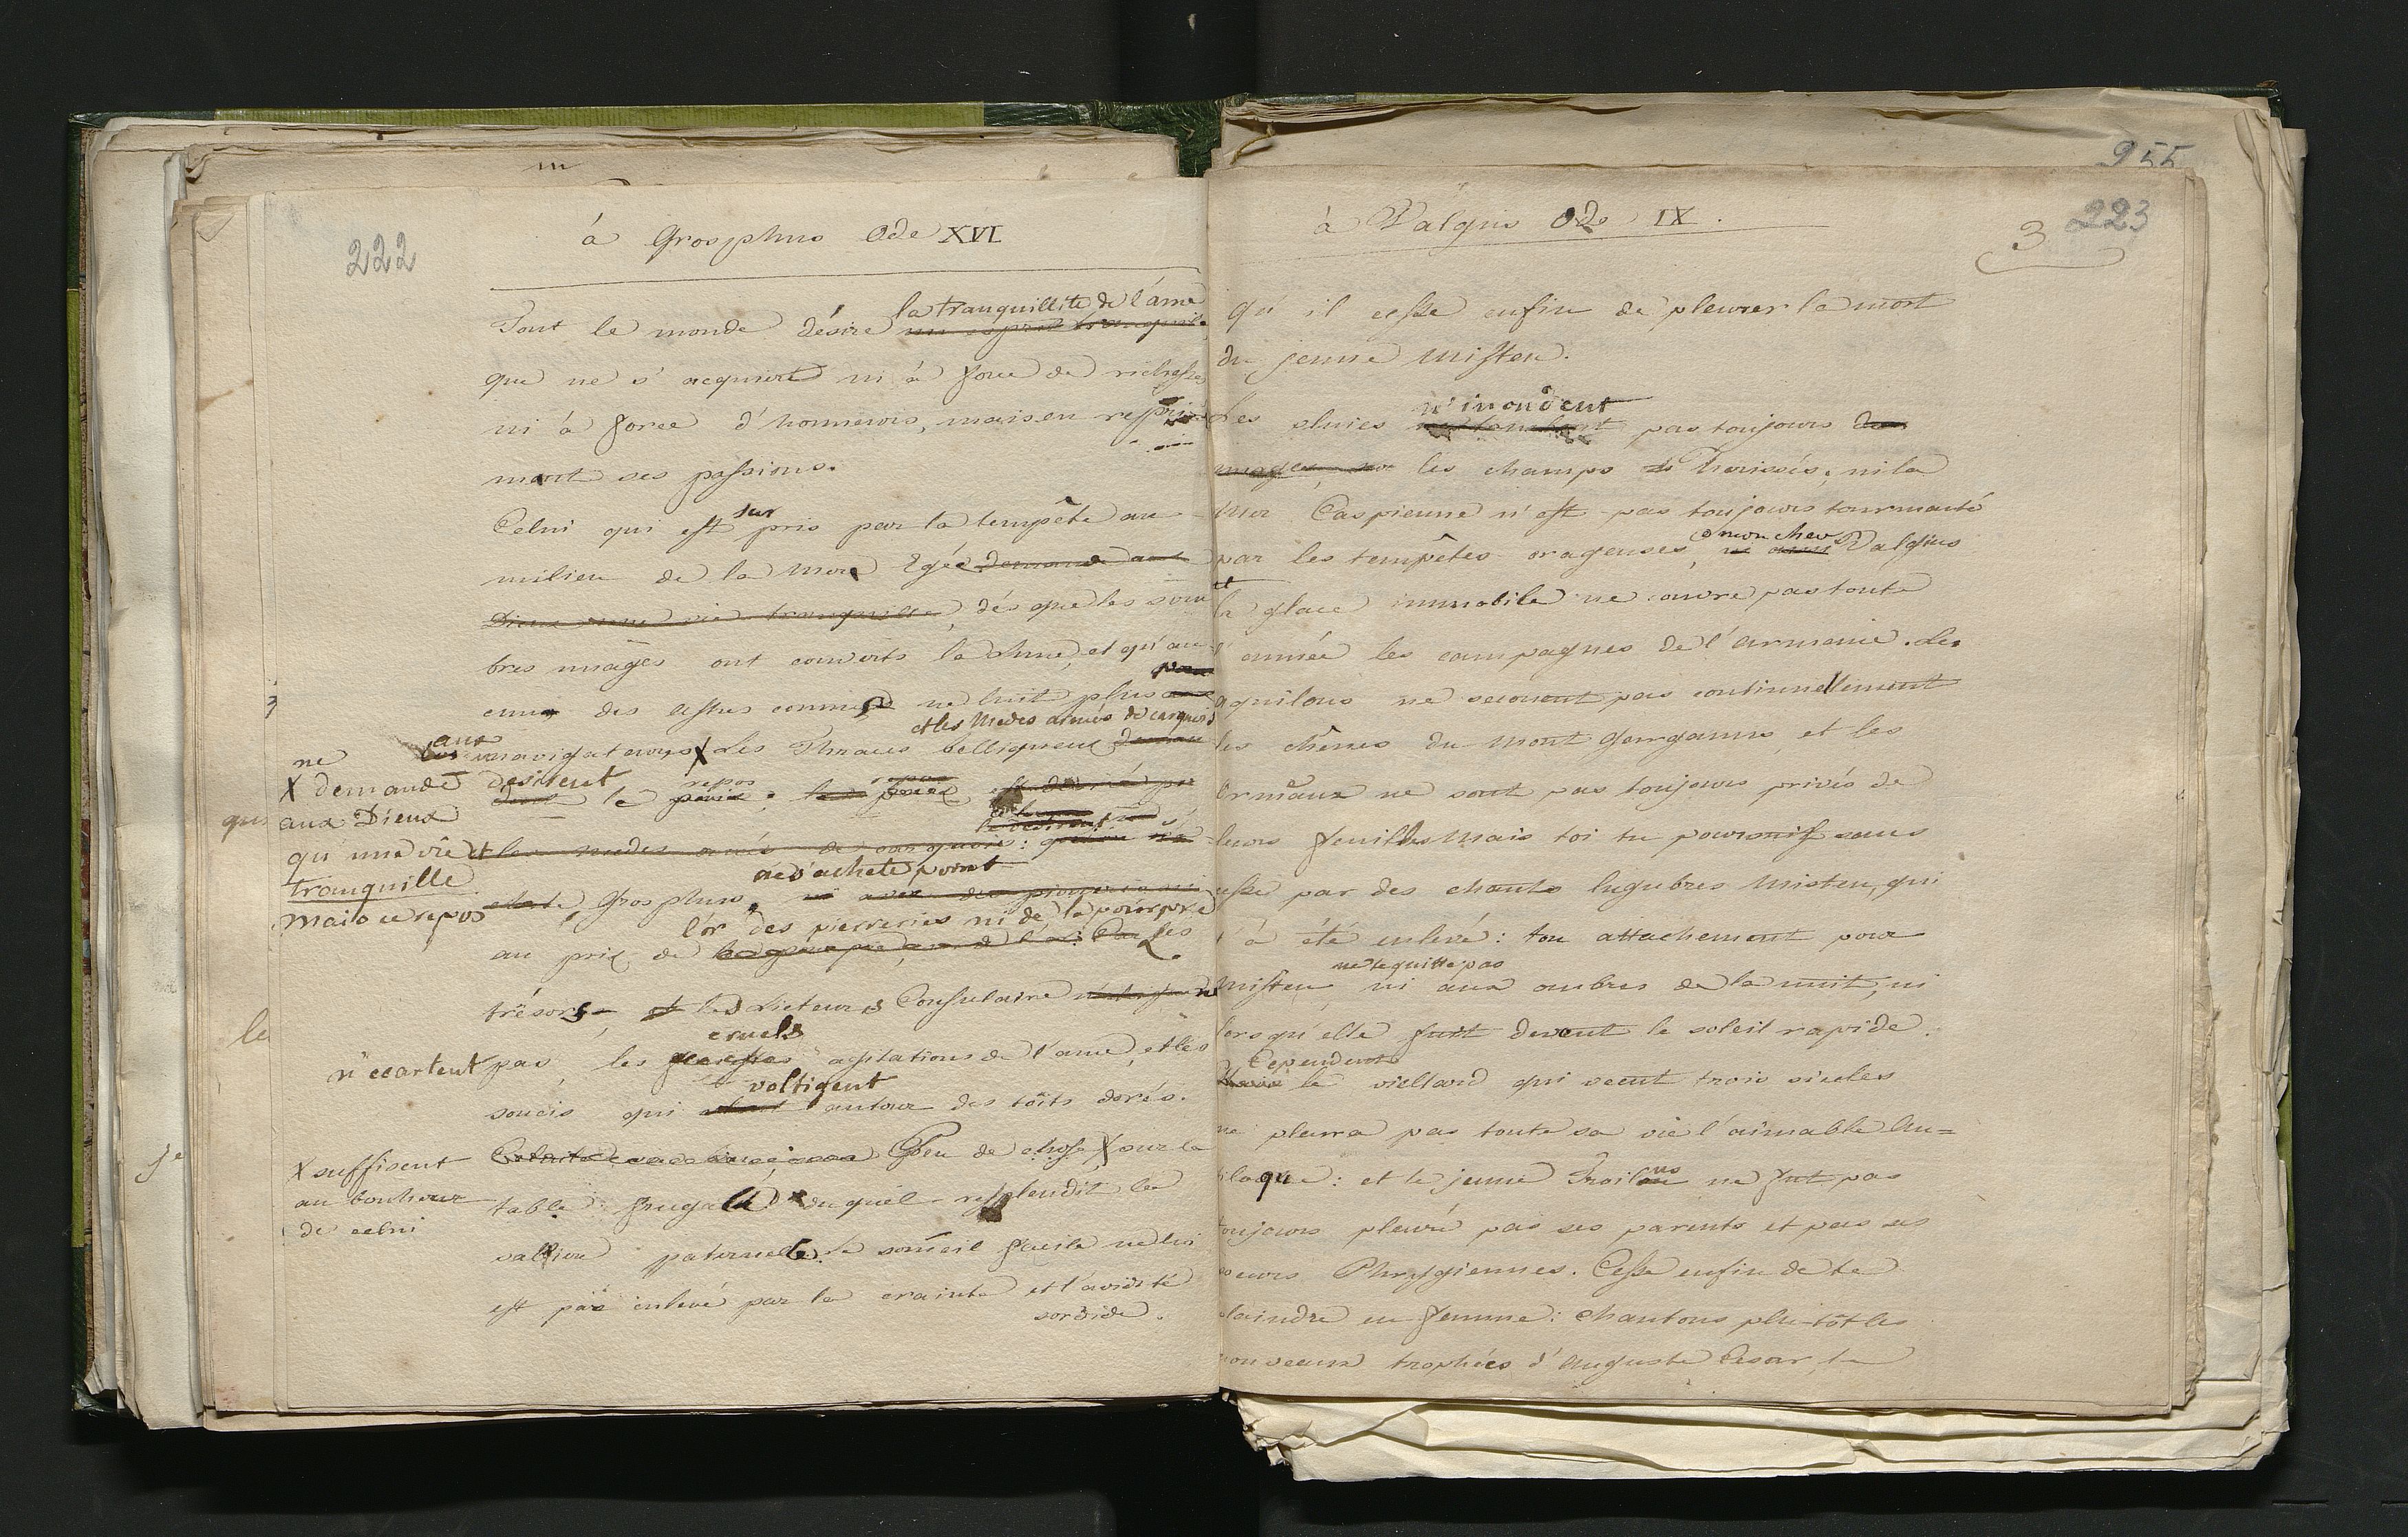 222
à Grosphus Ode XVI
la tranquillité de l'âme
Tout le monde désire un esprit tranquile
que ne s'acquiert ni à force de richesses
ni à force d'honneurs, mais en repri
mant ses passions.
sur
Celui qui est pris par la tempête au
milieu de la Mer Egée demande aux
Dieux une vie tranquille, dès que les som
bres nuages ont couverts la Lune, et qu'au
cun des astres connus ne luit plus
et les Medes armés de carquois
aux navigateurs X Les Thraces belliqueux
ne
X demande
aux Dieux
qu'une vie
tranquille
mais ce repos
desirent le repos
et les medes armés de carquois:
ne s'achete point
Grosphus,
l'or des pierreries ni de la pourpre
au prix de Les
trésors, et les Licteurs Consulaire
cruels
n'ecartent pas, les agitations de l'ame, et les
voltigent
soucis qui volent autour des toits dorés.
Peu de chose X sur la
X suffisent
au bonheur
de celui
table frugale duquel resplendit la
saliere paternelle. Le someil facile ne lui
est pas enlevé par la crainte et l'avidité
sordide.
955
223
3
à Valgius Ode IX.
qu'il cesse enfin de pleurer la mort
du jeune Misten.
n'inondent
Les pluies pas toujours des
nuages, sur les champs hérissés; ni la
Mer Caspienne n'est pas toujours tourmanté
o mon cher
par les tempêtes orageuses, Valgius
et
la glace immobile ne couvre pas toute
l'année les campagnes de l'armenie. Les
aquilons ne secouent pas continuellement
les chênes du Mont Garganus et les
Ormeaux ne sont pas toujours privés de
leurs feuilles Mais toi tu poursuis sans
cesse par des chants lugubres Misten, qui
t'a été enlevé: ton attachement pour
ne te quitte pas
Misten, ni aux ombres de la nuit, ni
lorsqu'elle fuit devent le soleil rapide.
Cependent
Mais le viellard qui vecut trois siecles
ne pleura pas toute sa vie l'aimable An=
tiloque: et le jeune Troilus ne fut pas
toujours pleuré pas ses parents et pas ses
soeurs Phrygiennes. Cesse enfin de te
plaindre en femme: chantons plu-tôt les
nouveaux trophées d'Auguste Cesar, le